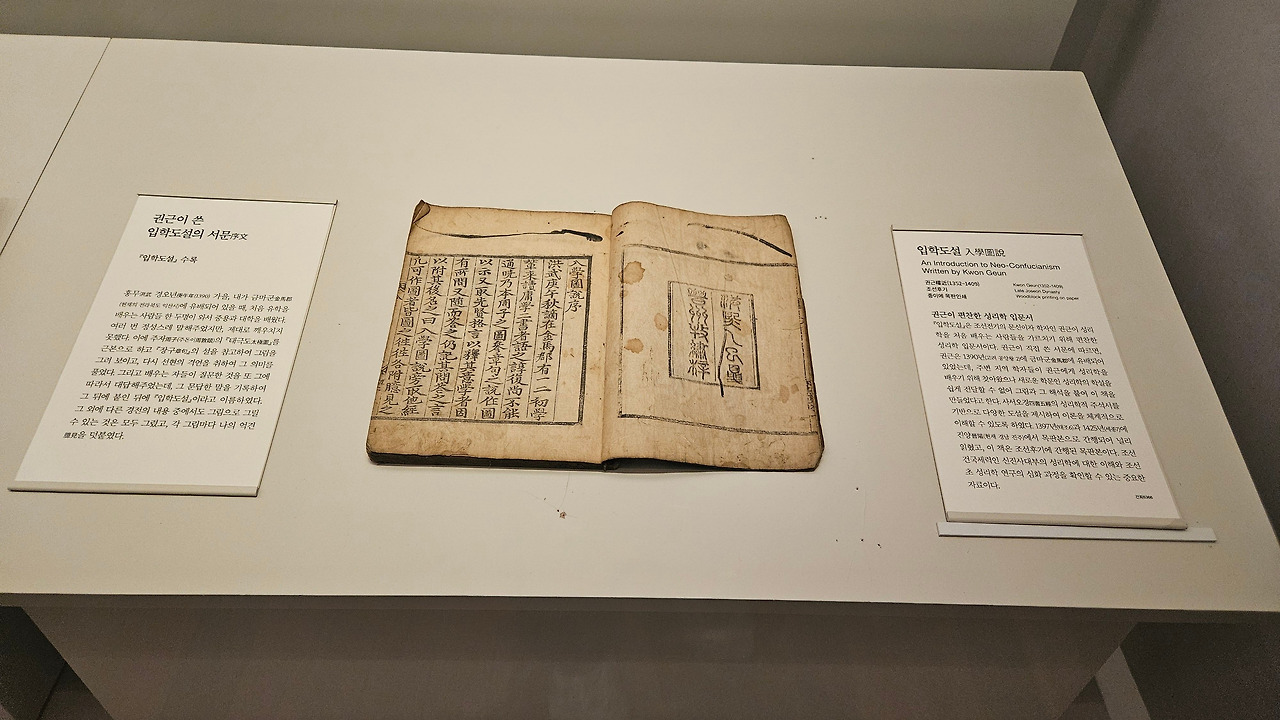 권근이 쓴
입학도설의 서문序文
『입학도설』 수록
홍무洪武 경오년庚午年(1390) 가을, 내가 금마군金馬郡
(현재의 전라북도 익산시)에 유배되어 있을 때, 처음 유학을
배우는 사람들 한 두명이 와서 중용과 대학을 배웠다.
여러 번 정성스레 말해주었지만, 제대로 깨우치지
못했다. 이에 주자周子(주돈이周敦頤)의 「태극도太極圖」를
근본으로 하고 『장구章句』의 설을 참고하여 그림을
그려 보이고, 다시 선현의 격언을 취하여 그 의미를
풀었다. 그리고 배우는 자들이 질문한 것을 또 그에
따라서 대답해주었는데, 그 문답한 말을 기록하여
그 뒤에 붙인 뒤에 『입학도설』이라고 이름하였다.
그 외에 다른 경전의 내용 중에서도 그림으로 그릴
수 있는 것은 모두 그렸고, 각 그림마다 나의 억견
臆見을 덧붙였다.
入學圖說序
洪武庚午秋謫在金馬郡有一二初學
輩來讀庸學二書者語之諄復尚不能
通曉乃本周子之圖參章句之說作圖
以示又取先賢格言以釋其意學者因
有所問又隨而答之仍記其問答之言
以附其後名之曰入學圖說旁取他經
凡可作圖者皆圖之往往各附臆見之
입학도설 入學圖說
An Introduction to Neo-Confucianism
Written by Kwon Geun
권근權近(1352-1409)
조선후기
종이에 목판인쇄
Kwon Geun(1352-1409)
Late Joseon Dynasty
Woodblock printing on paper
권근이 편찬한 성리학 입문서
『입학도설』은 조선전기의 문신이자 학자인 권근이 성리
학을 처음 배우는 사람들을 가르치기 위해 편찬한
성리학 입문서이다. 권근이 직접 쓴 서문에 따르면,
권근은 1390년(고려 공양왕 2)에 금마군金馬郡에 유배되어
있었는데, 주변 지역 학자들이 권근에게 성리학을
배우기 위해 찾아왔으나 새로운 학문인 성리학의 학설을
쉽게 전달할 수 없어 그림과 그 해석을 붙여 이 책을
만들었다고 한다. 사서오경四書五經의 성리학적 주석서를
기반으로 다양한 도설을 제시하여 이론을 체계적으로
이해할 수 있도록 하였다. 1397년(태조6)과 1425년(세종7)에
진양晉陽(현재 경남 진주)에서 목판본으로 간행되어 널리
읽혔고, 이 책은 조선후기에 간행된 목판본이다. 조선
건국세력인 신진사대부의 성리학에 대한 이해와 조선
초 성리학 연구의 심화 과정을 확인할 수 있는 중요한
자료이다.